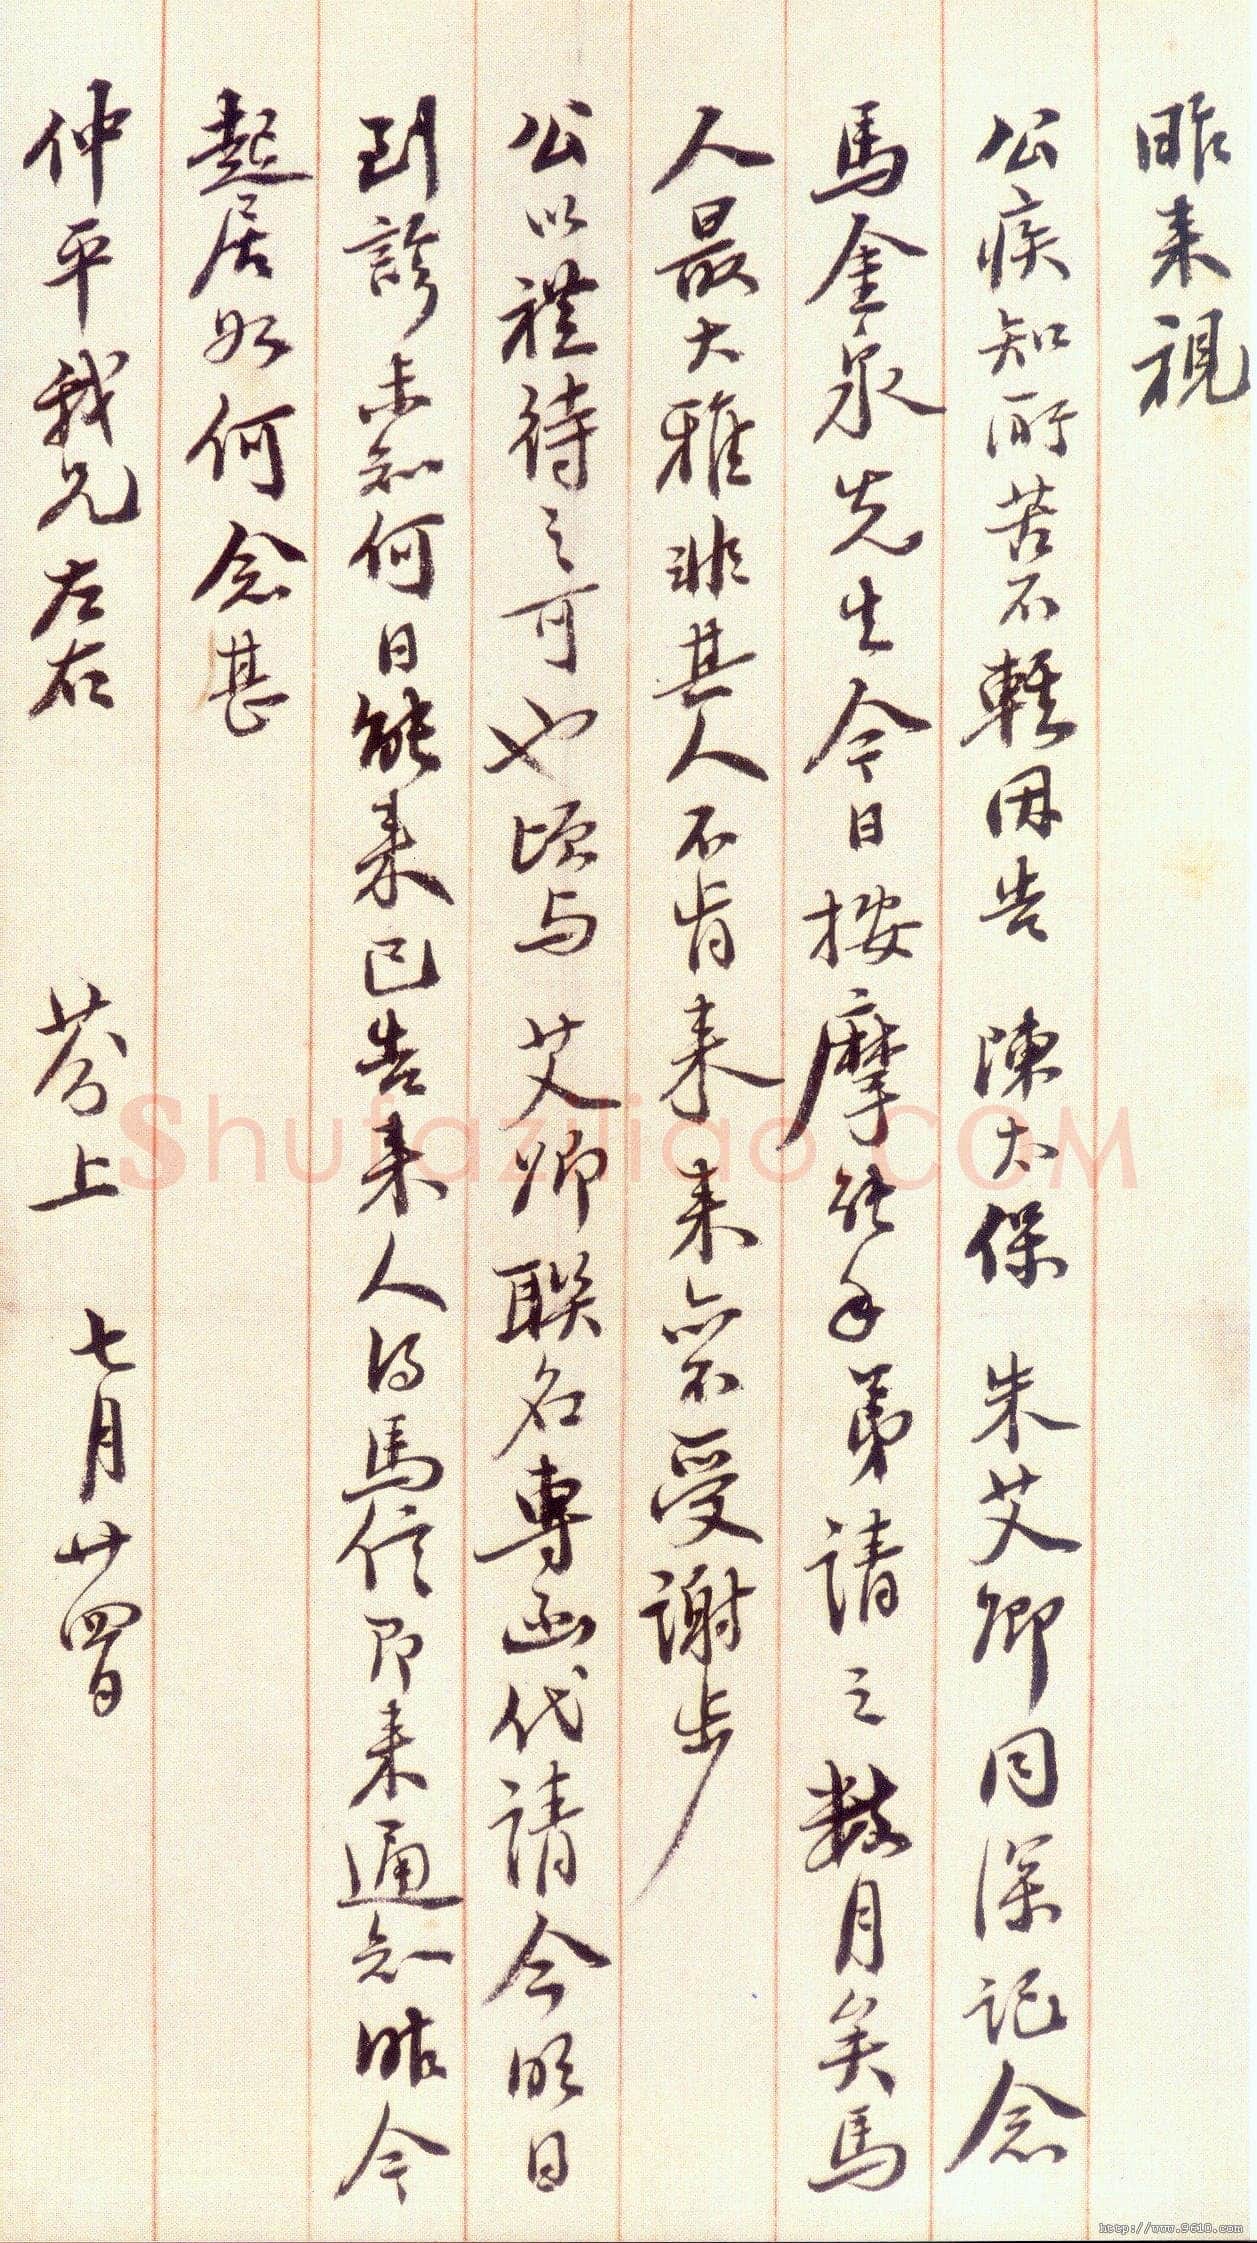 昨来視
公疾知所苦不輕因告 陳太保 朱艾卿同深記念
馬金泉先生今日按摩能手弟請之數月矣馬
人最大雅非其人不肯来来亦不受謝步
公以禮待之可也頃与 艾卿聯名專函代請今明日
到診未知何日能来已告来人得馬信即来通知昨今
起居如何念甚
仲平我兄左右
芬上 七月廿四日
Shufaziliao.COM
http://www.9610.com